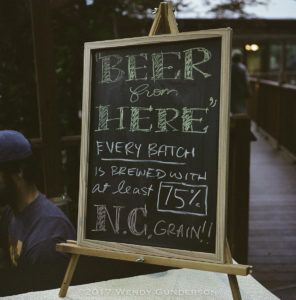 "BEER
from
HERE",
EVERY BATCH
IS BREWED WITH
at least 75%
N.C. GRAIN!!
©2017 WENDY GUNDERSON